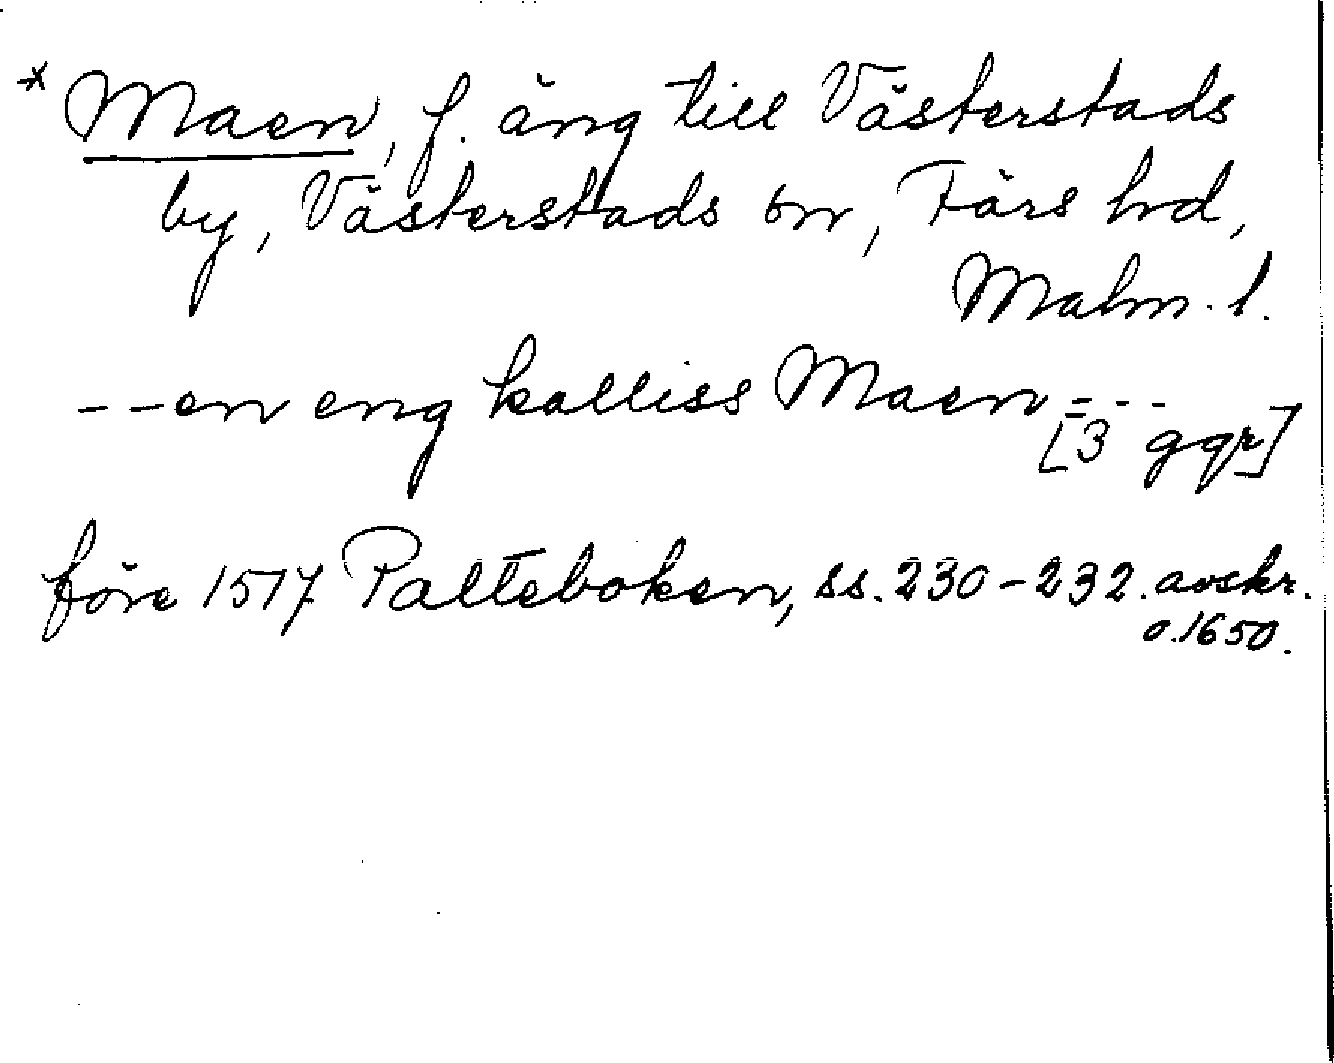 * Maen, f. äng till Västerstads
by, Västerstads sn, Färs hd,
Malm. l.
- - en eng kalliss Maen - - -
[3 ggr]
före 1517 Palteboken, ss. 230-232. avskr.
o. 1650.